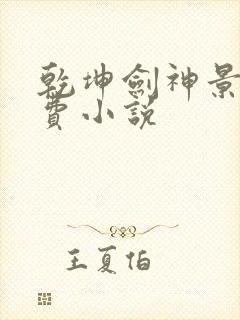 乾坤劍神景
費小說
王夏伯